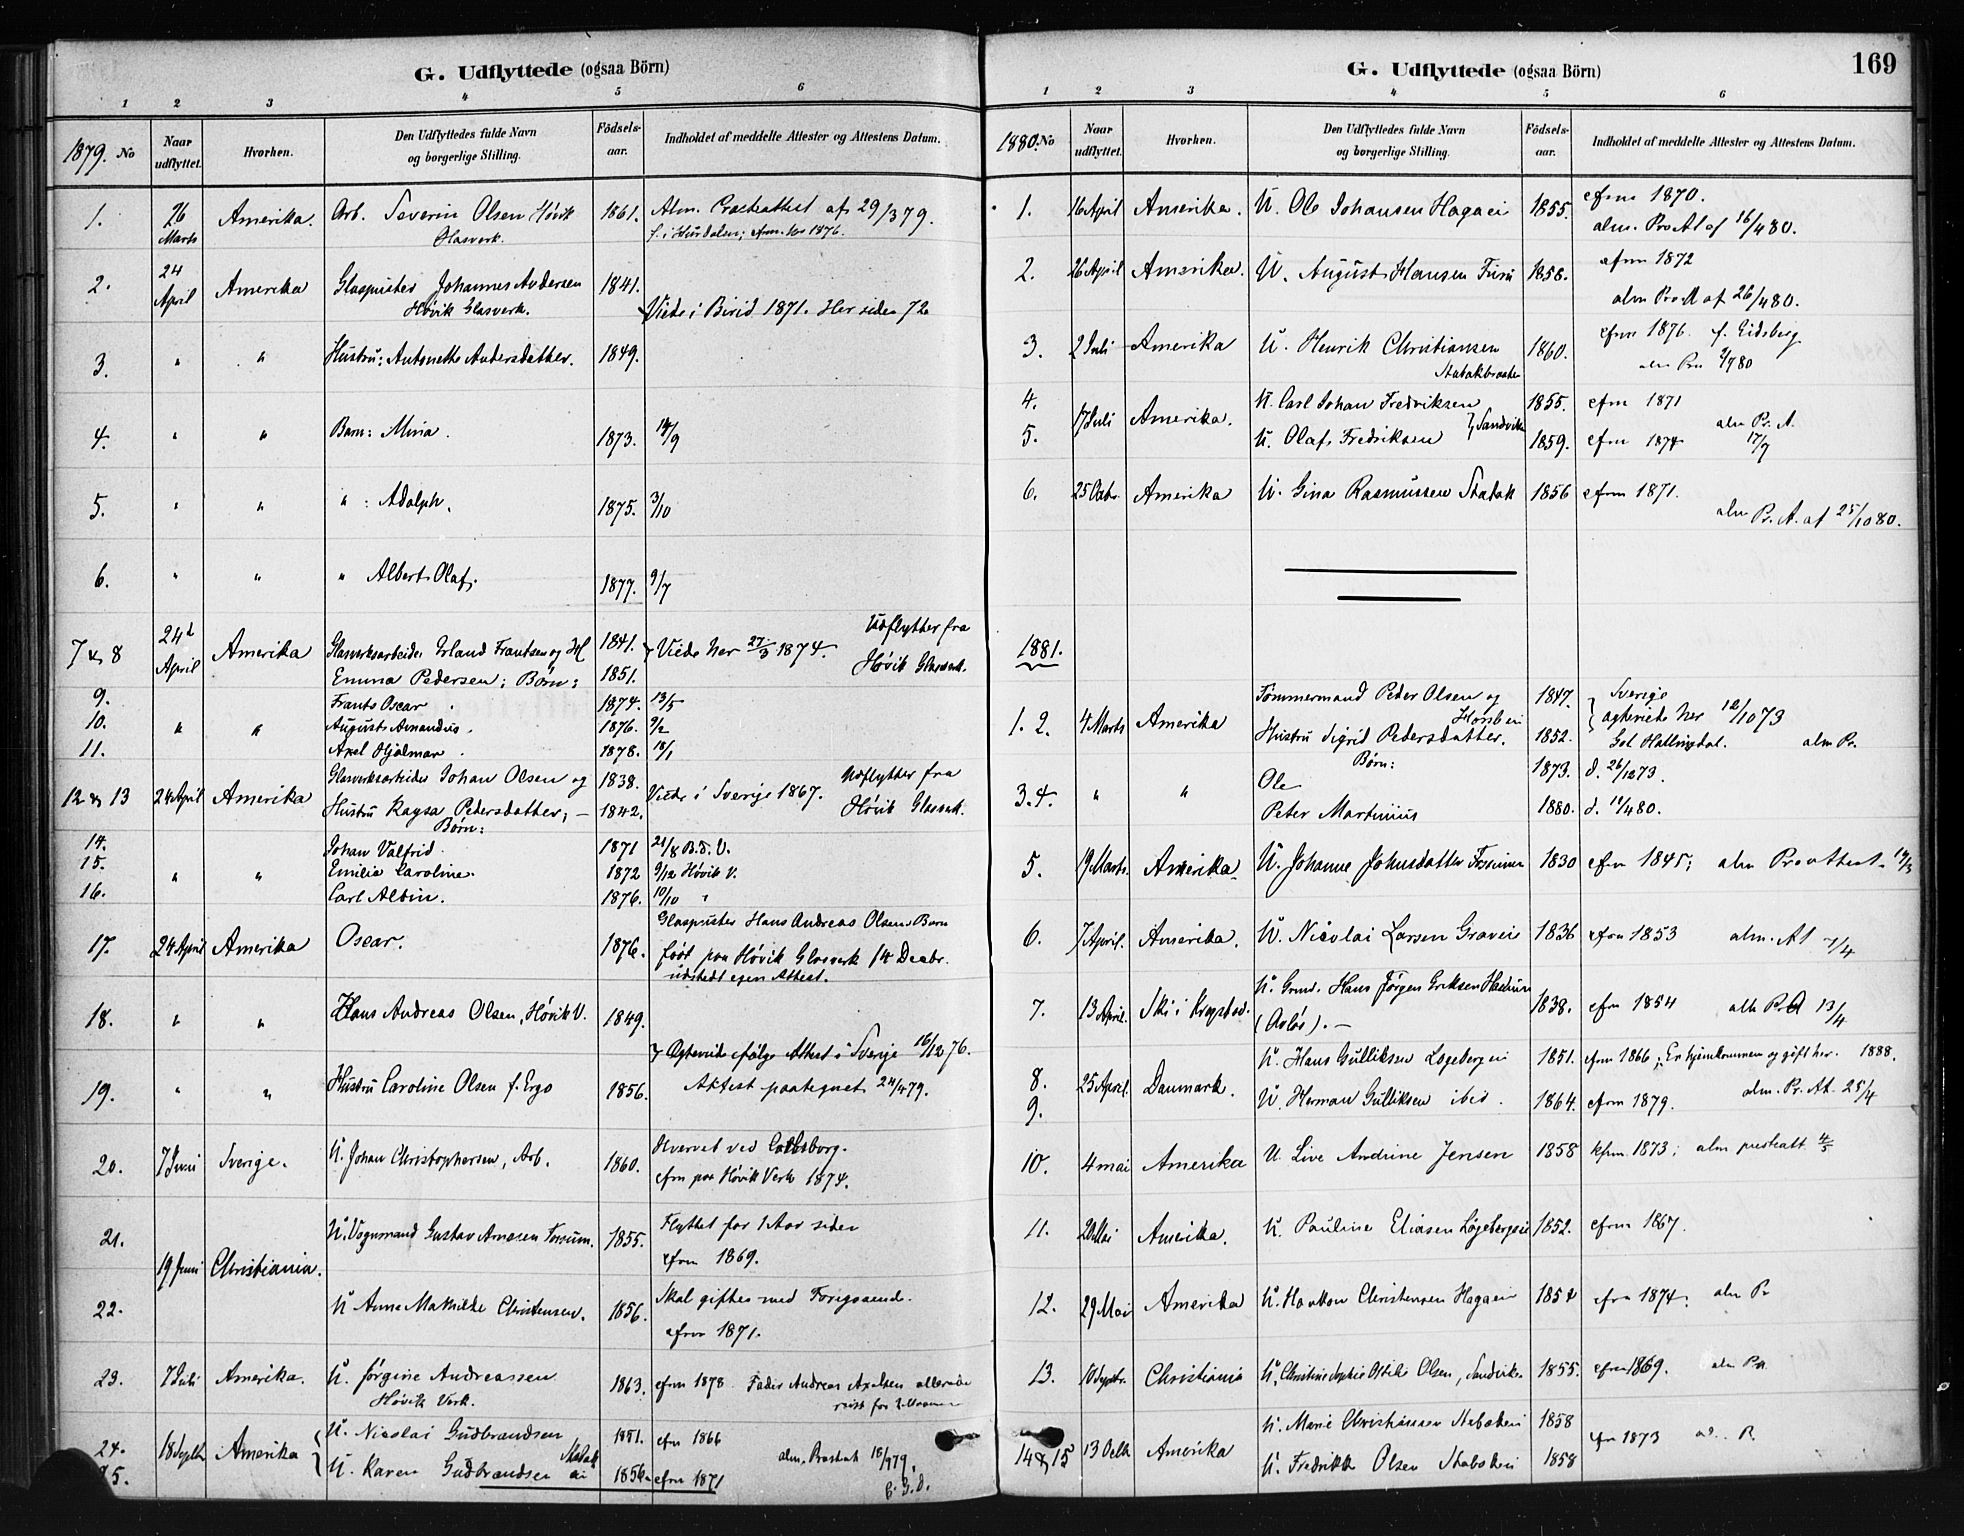 G. Udflyttede (ogsaa Börn)
1 2 3 4 5 6
1879. No
Naar udflyttet.
Hvorhen.
Den Udflyttedes fulde Navn og borgerlige Stilling.
Födsels-aar.
Indholdet af meddelte Attester og Attestens Datum.
1. 26 Marts Amerika. Arb. Severin Olsen Høvik 1861. Alm. Præsteattest af 29/379.
Glasverk. f. i Hurdalen; cfrm. 1876.
2. 24 April Amerika Glaspuster Johannes Andersen 1841.
Høvik Glasverk. Viede i Birid 1871. Her siden 72
3. " " Hustru: Antonette Andersdatter. 1849.
4. " " Barn: Mina. 1873. 14/9
5. " " " : Adolph. 1875. 3/10
6. " " " Albert Olaf. 1877. 9/7
7 & 8 24d April Amerika Glasverksarbeider Erland Frantsen og H 1841. Viede her 27/3 1874. Udflytter fra
Emma Pedersen; Børn: 1851. Høvik Glasverk.
9. Frants Oscar 1874. 13/5
10. " " August Amandus. 1876. 9/2
11. Axel Hjalmar 1878. 18/1
12 & 13 24 April Amerika Glasverksarbeider Johan Olsen og 1838. Viede i Sverige 1867. Udflytter fra
Hustru Kaysa Pedersdatter; — 1842. Høvik Glasverk.
Børn:
14. Johan Valfrid 1871 21/8 B.S.V.
15. " " Emilia Caroline. 1872 9/12 Høvik V.
16. Carl Albin. 1876. 10/10 "
17. 24 April Amerika Oscar. 1876. Glaspuster Hans Andreas Olsen Barn
født paa Høvik Glasverk 14 Decbr.
udstedt egen Attest.
18. " " Hans Andreas Olsen, Høvik V. 1849.
Ægteviede ifølge Attest i Sverige 16/12 76.
19. " " Hustru Caroline Olsen f. Ergo 1856. Attest paategnet 24/479.
20. 7 Juni Sverige. U. Johan Christophersen, Arb. 1860. Hvervet ved
cfrm paa Høvik Verk 1874.
21. U. Vognmand Gustav Arnesen Fossum. 1855. Flyttet for 1 Aar siden
cfrm 1869.
19 Juni Christiania.
22. U Anne Mathilde Christensen. 1856. Skal giftes med Foregaaende.
cfrm 1871.
23. 7 Juli Amerika. U. Jørgine Andreassen 1863. cfrm 1878. Fader Andreas Axelsen allerede
Høvik Verk. reist for
24. 18 Septbr Amerika U. Nicolai Gudbrandsen 1851. cfrm 1866
25. U. Karen Gudbrandsen 1856. cfrm 1871 alm. Prestat 18/979.
G. Udflyttede (ogsaa Börn) 169
1 2 3 4 5 6
1880. No
Naar udflyttet.
Hvorhen.
Den Udflyttedes fulde Navn og borgerlige Stilling.
Födsels-aar.
Indholdet af meddelte Attester og Attestens Datum.
1. 16 April Amerika. U. Ole Johansen Hagaei 1855. cfrm 1870.
alm. Pr.At af 16/480.
2. 26 April Amerika. U. August Hansen Furu 1858. cfrm 1872
alm Pr.A af 26/480.
3. 2 Juli Amerika U. Henrik Christiansen 1860. cfrm 1876. f. Eidsberg
Stabækbraaten alm Pra 2/780
4. U. Carl Johan Fredriksen 1855. cfrm 1871
17 Juli Amerika. Sandviken alm Pr. A.
5. U. Olaf Fredriksen 1859. cfrm 1874 17/7
6. 25 Octbr. Amerika U. Gina Rasmussen Stabæk 1856 cfrm 1871.
alm Pr. A. af 25/1080.
1881.
1. 2. 4 Marts Amerika Tømmermand Peder Olsen og 1847. Sverige
Hustru Sigrid Pedersdatter. 1852. ægteviede her 12/1073
Gol Hallingdal. alm Pr.
Børn:
3. 4. " " Ole 1873. d. 26/1273.
Peter Martinius 1880. d. 14/480.
5. 19 Marts. Amerika. U. Johanne Johnsdatter Fossum 1830 cfrm 1845; alm Præattest. 19/3
6. 7 April. Amerika. U. Nicolai Larsen Gravei 1836 cfrm 1853 alm. At 7/4
7. 13 April. Ski i Kraakstad. U. Grund. Hans Jørgen Eriksen 1838. cfrm 1854 alm Pr.A 13/4
(Asløs). —
8. U. Hans Gulliksen Løgebergei 1851. cfrm 1866; Er hjemkommen og gift her. 1888.
25 April. Danmark.
9. U. Herman Gulliksen ibid. 1864. cfrm 1879. alm. Pr. At. 25/4
10. 4 mai Amerika U. Live Andrine Jensen 1858 kfrm 1873; alm presteatt 4/5
11. 20 Mai Amerika. U. Pauline Eliasen Løgebergei 1852. cfrm 1867.
12. 29 Mai Amerika U. Haakon Christensen Hagaei 1854 cfrm 1874. alm Pr
13. 10 Septbr. Christiania U. Christine Sophie Ottilie Olsen, Sandviken 1855. cfrm 1869. alm Pr.
14 & 15 13 Octb Amerika U. Marie Christiansen Stabækei 1858
cfrm 1873
U. Fredrikke Olsen Stabækei 1858